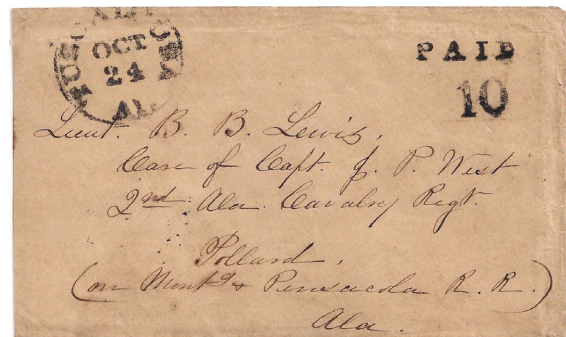 TUSCALOOSA
OCT
24
Al.
PAID
10
Lieut. B. B. Lewis,
Care of Capt. J. P. West
2nd Ala. Cavalry Regt.
Pollard,
(on Montg & Pensacola R. R.)
Ala.